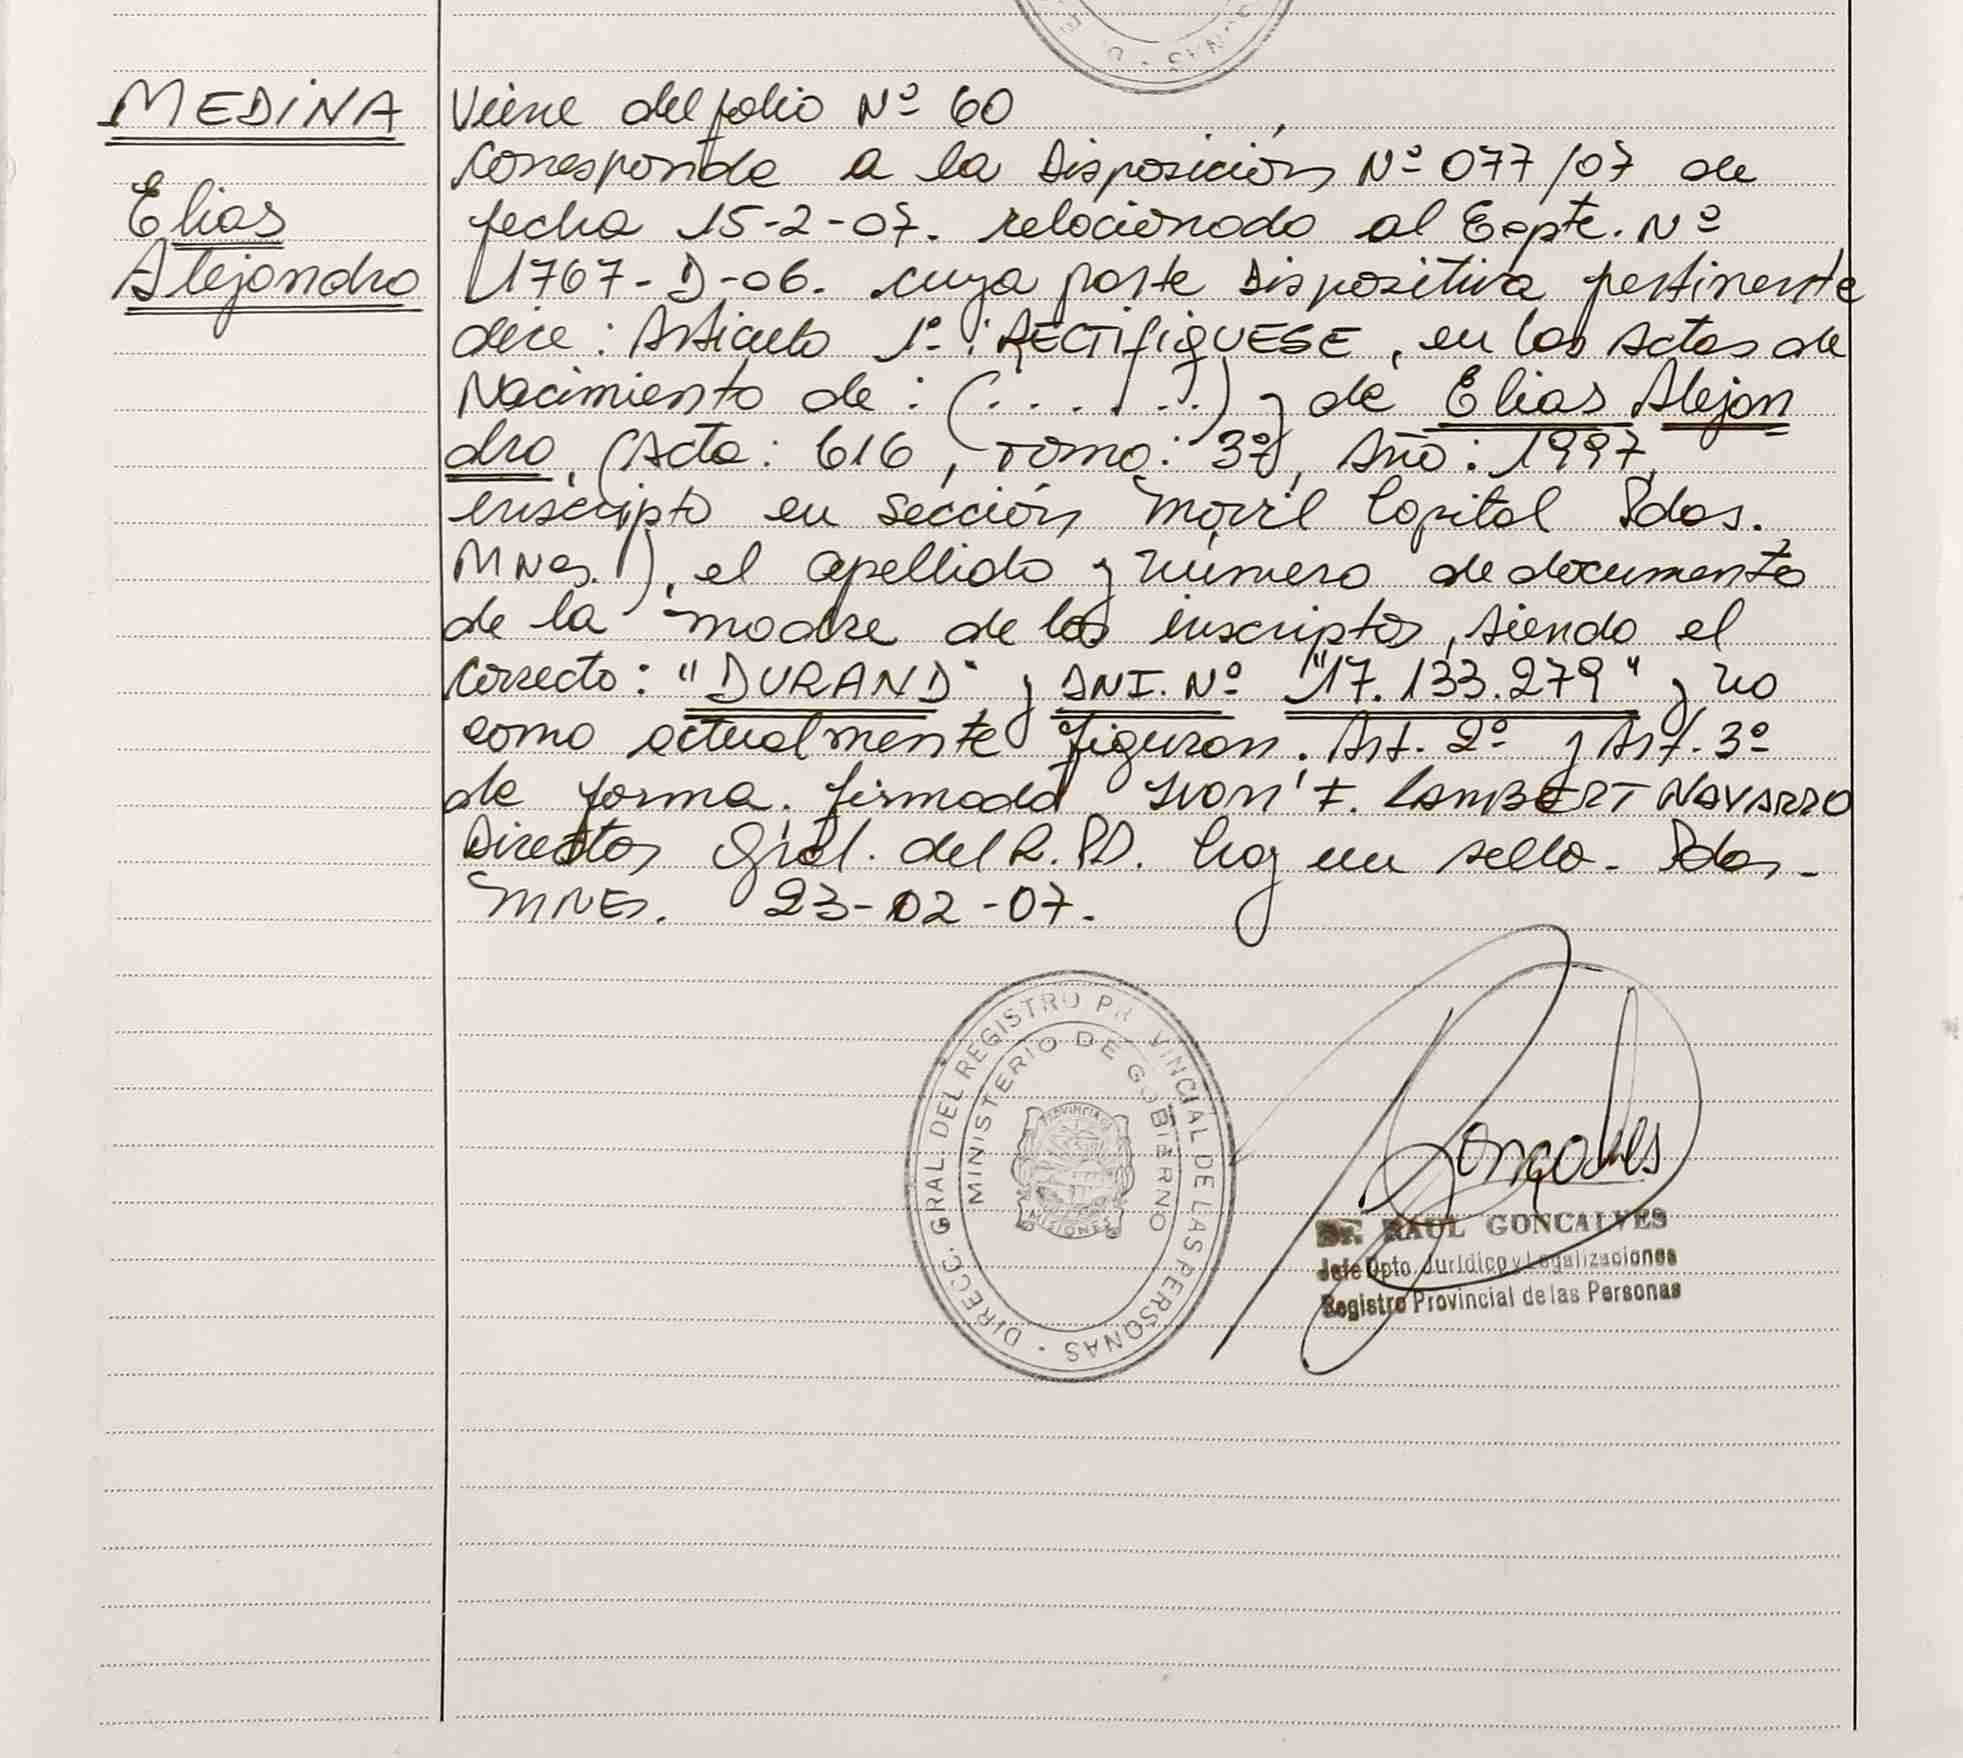 MEDINA
Elias
Alejandro
Viene del folio Nº 60
Corresponde a la Disposición Nº 077/07 de
fecha 15-2-07. relacionado al Expte. Nº
1767-D-06. cuya parte Dispositiva pertinente
dice: Articulo 1º: RECTIFIQUESE, en las Actas de
Nacimiento de: (. . . . . .) y de Elias Alejan
dro, (Acta: 616, Tomo: 3º, Año: 1997,
inscripto en Sección Móvil Capital Pdas.
MNes.), el apellido y número de documento
de la madre de los inscriptos, siendo el
Correcto: "DURAND" y DNI. Nº "17.133.279" y no
como actualmente figuran. Art. 2º y Art. 3º
de forma. firmada Ivon F. LAMBERT NAVARRO
Director Gral. del R.P.P. hay un sello. Pdas.
MNES. 23-02-07.
DIRECC. GRAL. DEL REGISTRO PROVINCIAL DE LAS PERSONAS
MINISTERIO DE GOBIERNO
PROVINCIA
MISIONES
Goncalves
Dr. RAUL GONCALVES
Jefe Dpto. Jurídico y Legalizaciones
Registro Provincial de las Personas